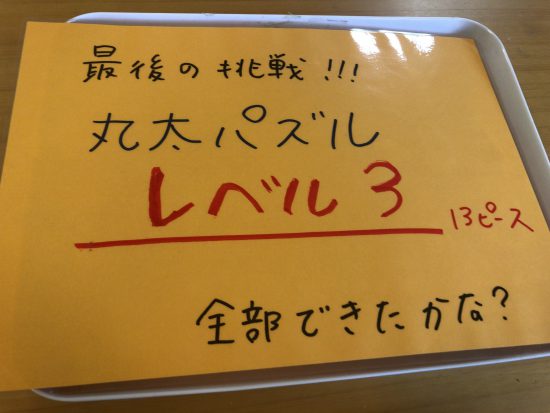 最後の挑戦!!!
丸太パズル
レベル3
13ピース
全部できたかな?